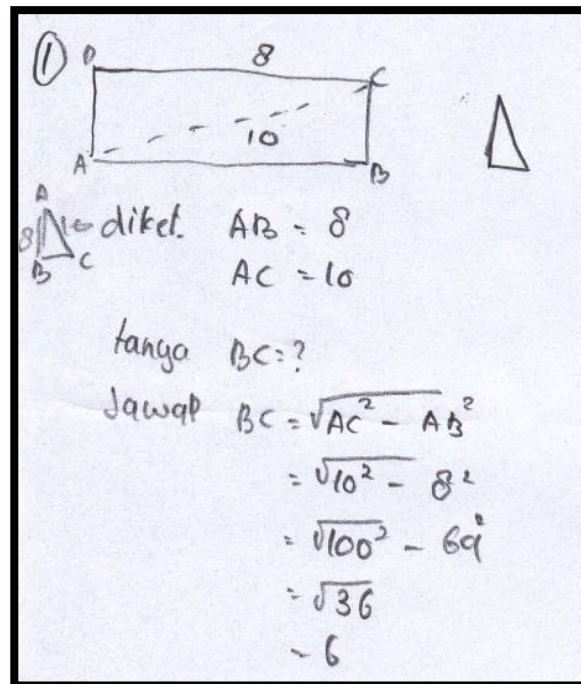 1
D 8 C
10
A B
A
8 10
B C
diket. AB = 8
AC = 10
tanya BC = ?
Jawab BC = √AC² - AB²
= √10² - 8²
= √100² - 64²
= √36
- 6